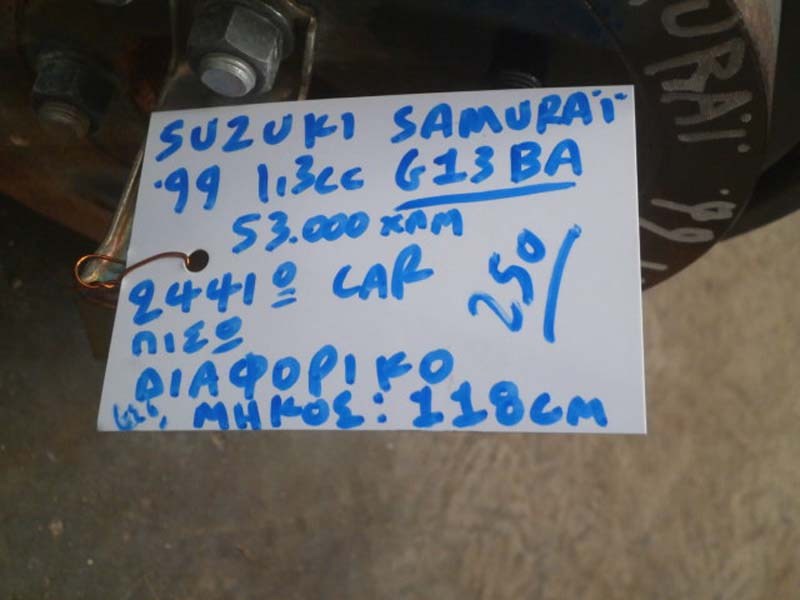 SUZUKI SAMURAΪ
'99 1,3cc G13BA
53.000 ΧΛΜ
2441º CAR
250/
ΠΙΣΩ
ΔΙΑΦΟΡΙΚΟ
ΜΗΚΟΣ: 118CM
URAΪ '99